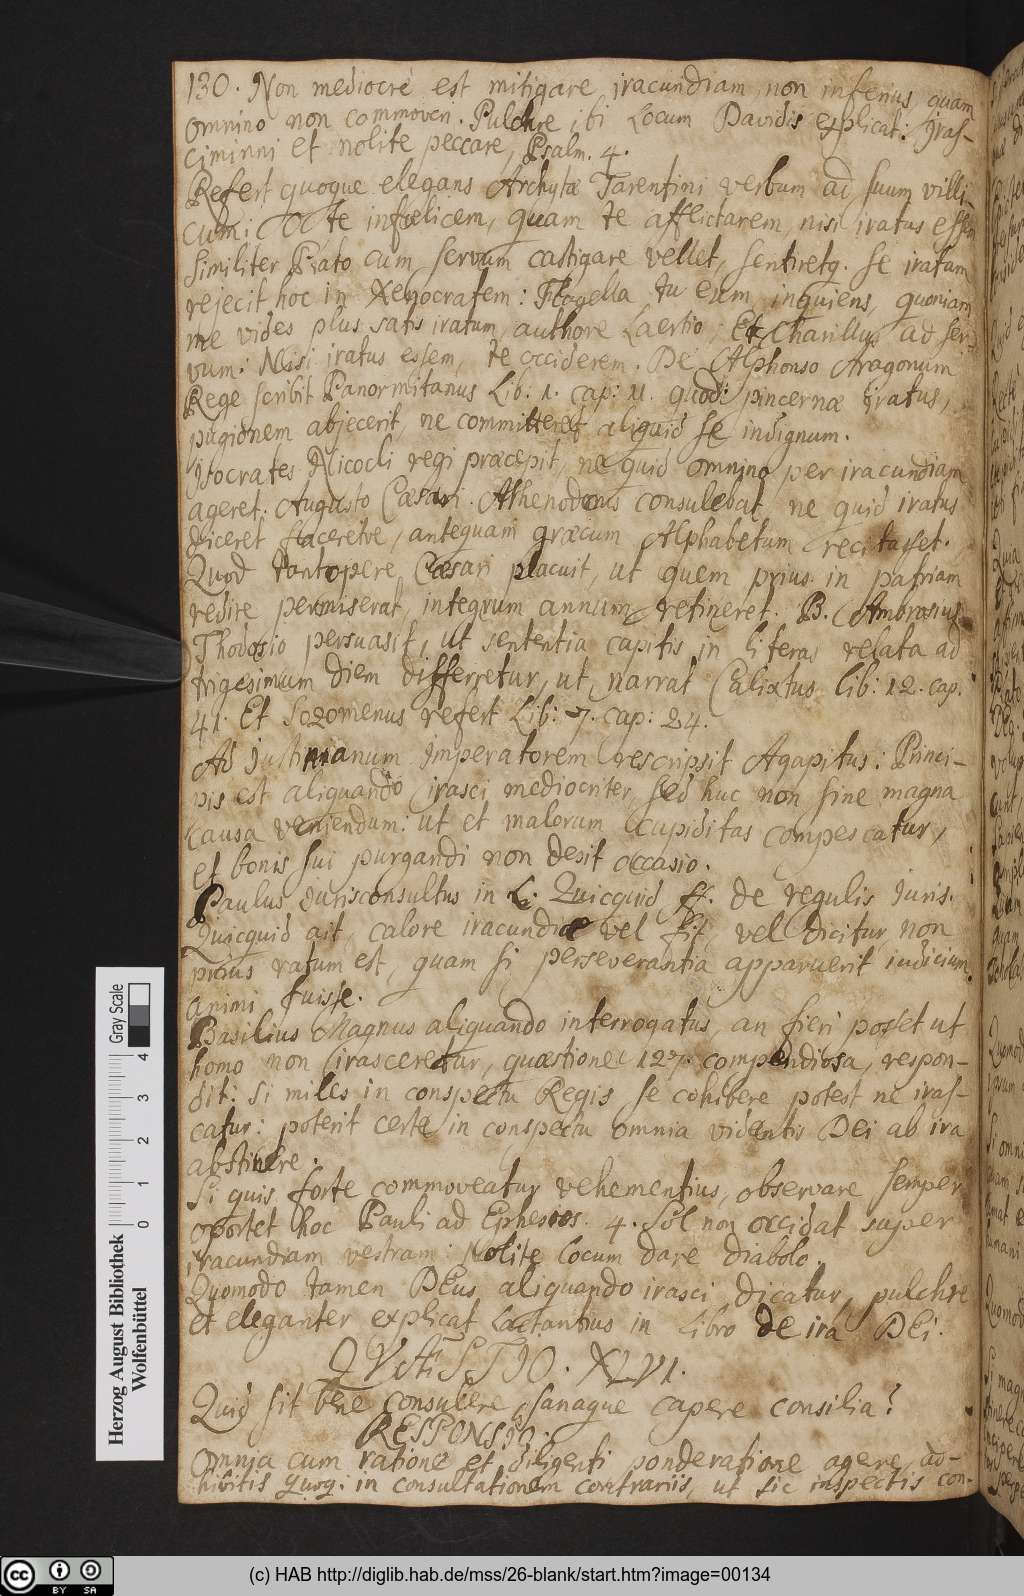 130. Non mediocre est mitigare iracundiam, non inferius, quam
omnino non commoveri. Pulchre ibi locum Davidis explicat: Iras-
ciminni et nolite peccare, Psalm. 4.
Refert quoque elegans Archytæ Tarentini verbum ad suum villi-
cum: O te infælicem, quam te afflictarem, nisi iratus essem
similiter Plato cum servum castigare vellet, sentiretq. se iratum
rejecit hoc in Xenocratem: Flagella tu eum, inquiens, quoniam
me vides plus satis iratum, authore Laertio; Et Charillus ad ser-
vum: Nisi iratus essem, te occiderem. De Alphonso Aragonum
Rege scribit Panormitanus Lib: 1. cap: 11. quod pincernæ iratus,
pugionem abjecerit, ne committeret aliquid se indignum.
Isocrates Nicocli regi præcepit, ne quid omnino per iracundiam
ageret. Augusto Cæsari Athenodorus consulebat, ne quid iratus
diceret faceretve, antequam græcum Alphabetum recitasset.
Quod tantopere Cæsari placuit, ut quem prius in patriam
redire permiserat, integrum annum retineret. B. Ambrosius
Thodosio persuasit, ut sententia capitis in literas relata ad
trigesimum diem differretur, ut narrat Calixtus lib: 12. cap.
41. Et Sozomenus refert Lib: 7. cap: 24.
Ad Justinianum Imperatorem rescripsit Agapitus: Princi-
pis est aliquando irasci mediocriter, sed huc non sine magna
causa veniendum: ut et malorum cupiditas compescatur,
et bonis sui purgandi non desit occasio.
Paulus Jurisconsultus in L. Quicquid ff. de regulis Juris.
Quicquid ait, calore iracundiæ vel fit, vel dicitur, non
prius ratum est, quam si perseverantia apparuerit iudicium
animi fuisse.
Basilius Magnus aliquando interrogatus, an fieri posset ut
homo non irasceretur, quæstione 127. compendiosa, respon-
dit: Si miles in conspectu Regis se cohibere potest ne iras-
catur: poterit certe in conspectu omnia videntis Dei ab ira
abstinere.
Si quis forte commoveatur vehementius, observare semper
oportet hoc Pauli ad Ephesios. 4. Sol non occidat super
iracundiam vestram: Nolite locum dare diabolo.
Quomodo tamen DEus aliquando irasci dicatur, pulchre
et eleganter explicat Lactantius in libro de ira DEi.
QVÆSTIO. XLVI.
Quid sit bene consulere, sanaque capere consilia?
RESPONSIO.
Omnia cum ratione et diligenti ponderatione agere, ad-
hibitis in consultationem contrariis, ut sic inspectis con-
Herzog August Bibliothek
Wolfenbüttel
0 1 2 3 4
Gray Scale
cc BY SA
(c) HAB http://diglib.hab.de/mss/26-blank/start.htm?image=00134